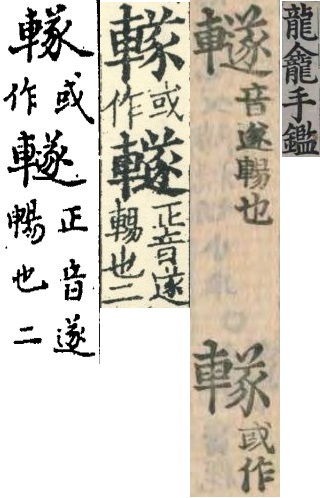 龍龕手鑑
音遂暢也
或作
或作
正音遂
暢也二
或作
正音遂
暢也二